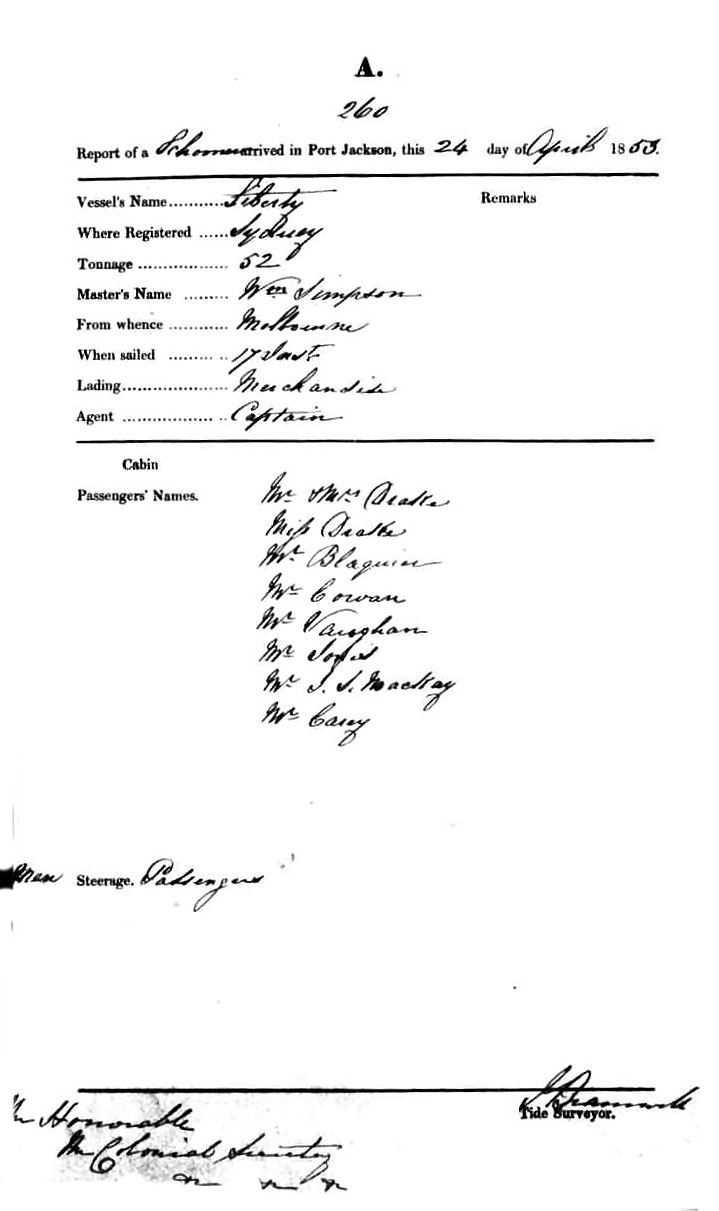 A.
260
Report of a Schooner arrived in Port Jackson, this 24 day of April 1853.
Vessel's Name........... Liberty
Remarks
Where Registered ...... Sydney
Tonnage .................. 52
Master's Name ......... Wm Simpson
From whence ............ Melbourne
When sailed ............ 17 Inst
Lading..................... Merchandise
Agent .................... Captain
Cabin
Passengers' Names.
Mr & Mrs Drake
Miss Drake
Mr Blaquier
Mr Cowan
Mr Vaughan
Mr
Mr J. S. Mackay
Mr Casey
Steerage. Passengers
Tide Surveyor.
Honorable
Colonial Secretary